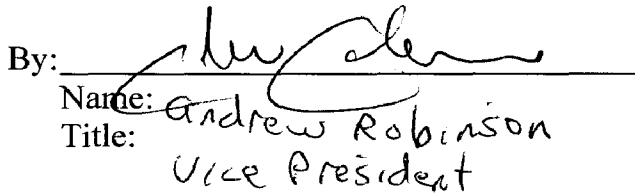 By:
Name: Andrew Robinson
Title:
Vice President